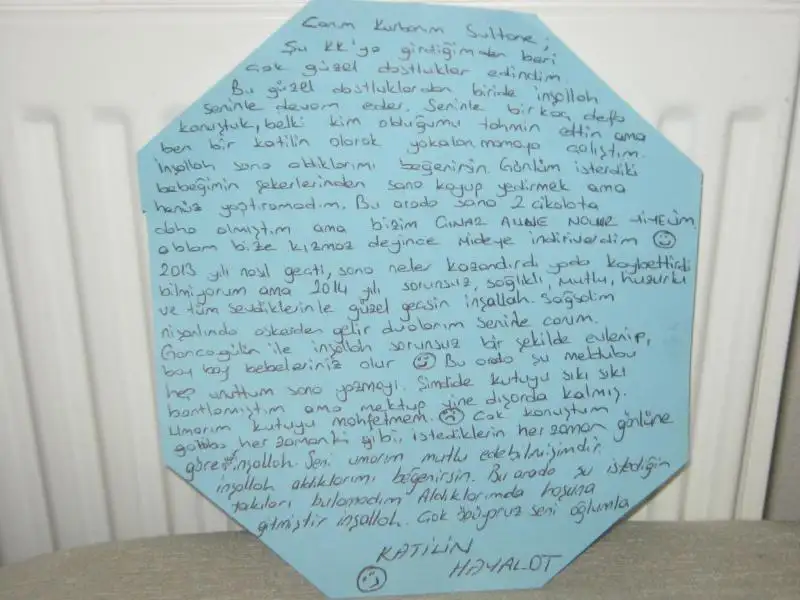 Canım Kurbanım Sultane;
Şu KK'ya girdiğimden beri
çok güzel dostluklar edindim.
Bu güzel dostluklardan biride inşallah
seninle devam eder. Seninle birkaç defa
konuştuk, belki kim olduğumu tahmin ettin ama
ben bir katilin olarak yakalanmamaya çalıştım.
İnşallah sana aldıklarımı beğenirsin. Gönlüm isterdiki
bebeğimin şekerlerinden sana koyup yedirmek ama
henüz yaptıramadım. Bu arada sana 2 çikolata
daha almıştım ama bizim ÇINAR ANNE
ablam bize kızmaz deyince mideye indirivardim
2013 yılı nasıl geçti, sana neler kazandırdı yada kaybettirdi
bilmiyorum ama 2014 yılı sorunsuz, sağlıklı, mutlu, huzurlu
ve tüm sevdiklerinle güzel geçsin inşallah. Sağsalim
nişanlında askerden gelir dualarım seninle canım.
Goncagülün ile inşallah sorunsuz bir şekilde evlenip,
boy boy bebeleriniz olur Bu arada şu mektubu
hep unuttum sana yazmayı. Şimdide kutuyu sıkı sıkı
bantlamıştım ama mektup yine dışarda kalmış.
Umarım kutuyu mahfetmem. Çok konuştum
galiba her zamanki gibi, istediklerin her zaman gönlüne
göre inşallah. Seni umarım mutlu edebilmişimdir.
inşallah aldıklarımı beğenirsin. Bu arada şu istediğin
takıları bulamadım Aldıklarımda hoşuna
gitmiştir inşallah. Çok öpüyoruz seni oğlumla
KATİLİN
HAYALOT